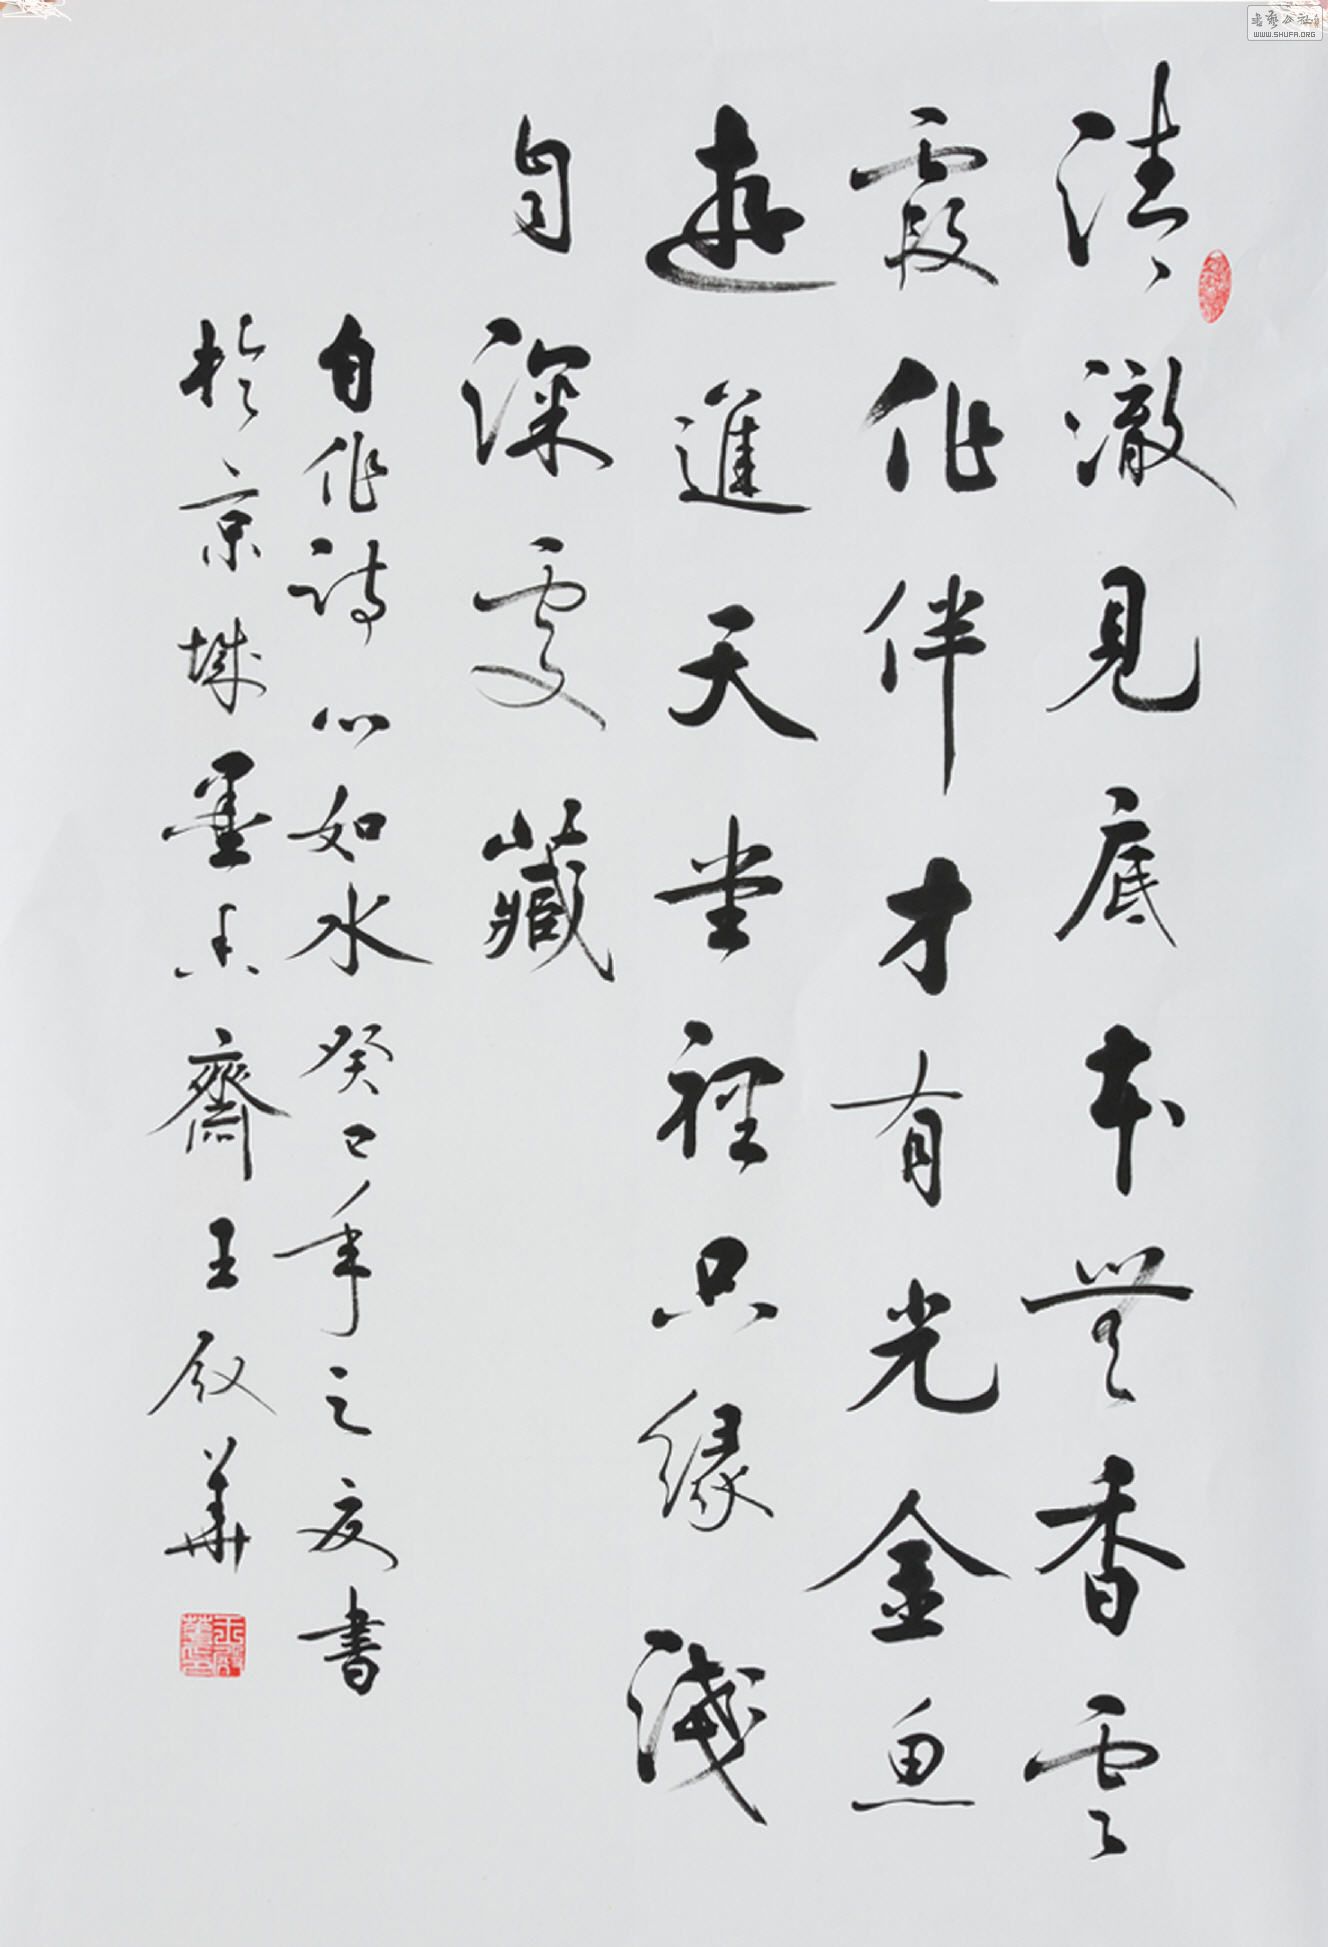 清澈見底本無香雲
霞作伴才有光金魚
遊進天堂裡只緣淺
自深處藏
自作詩心如水癸巳年之夏書
於京城墨香齋王殿華
WWW.SHUFA.ORG